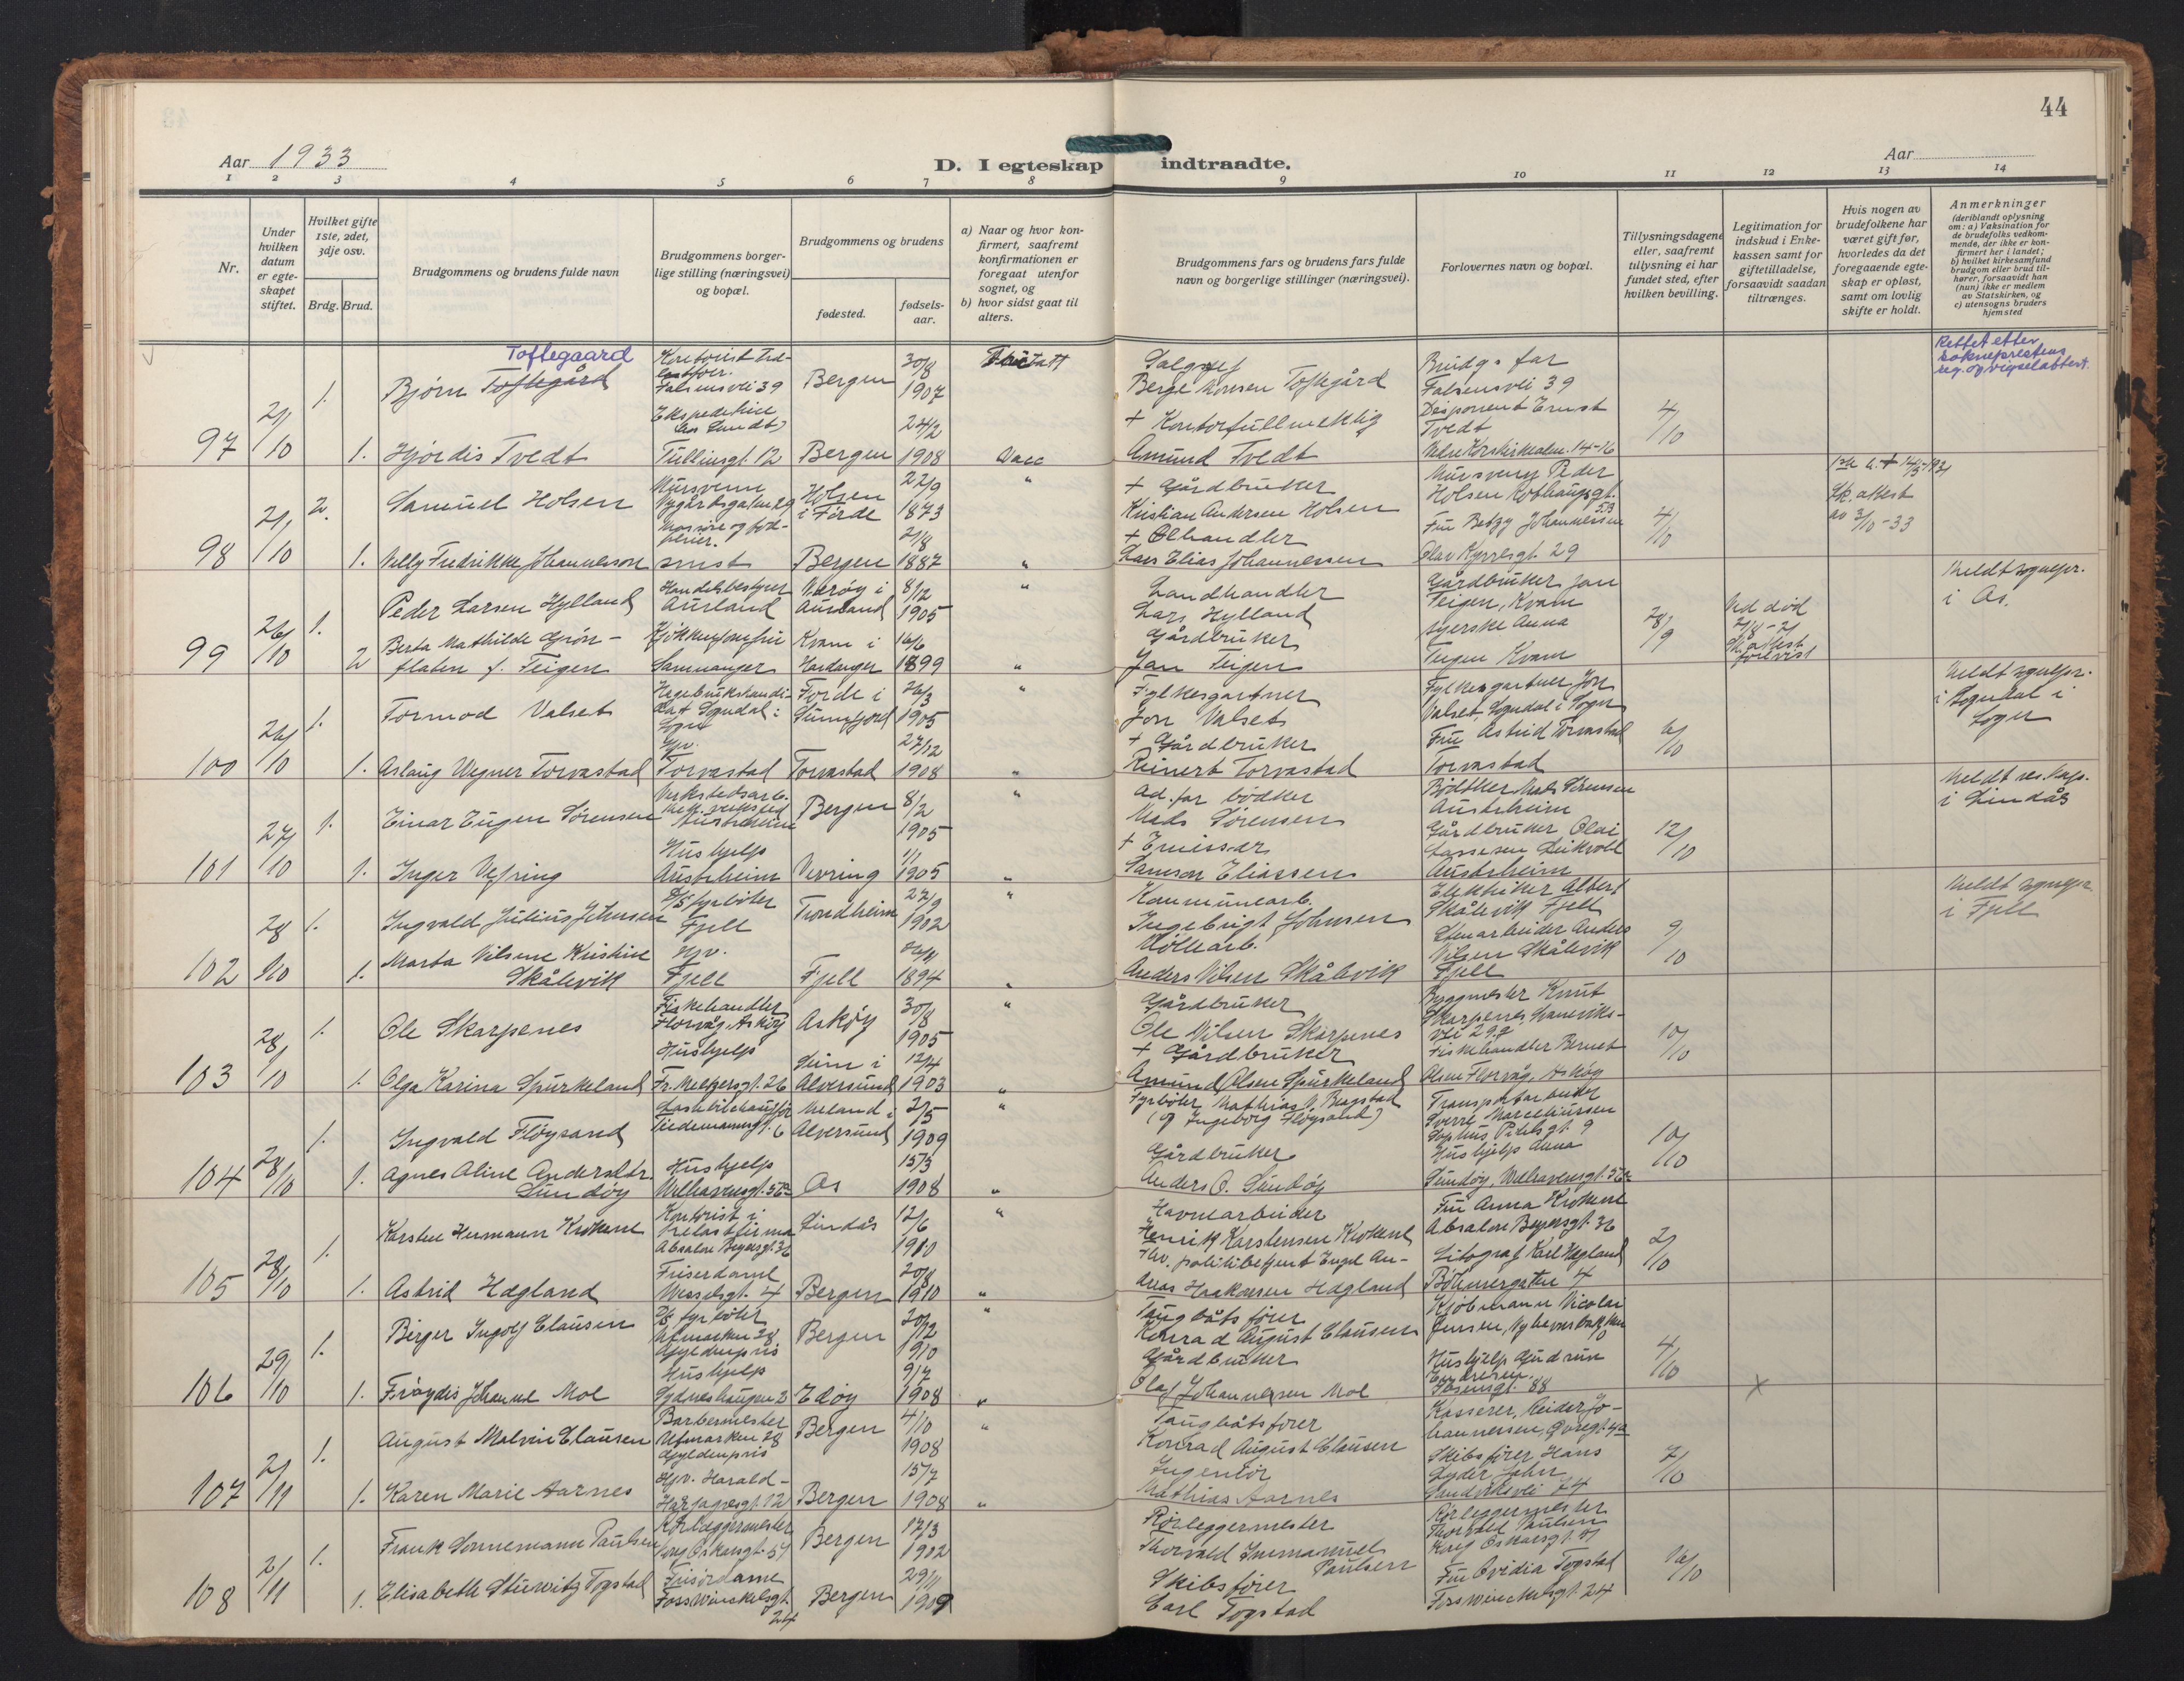 44
Aar 1933
D. I egteskap indtraadte.
Aar
1 2 3 4 5 6 7 8 9 10 11 12 13 14
Nr.
Under hvilken datum er egteskapet stiftet.
Hvilket gifte 1ste, 2det, 3dje osv.
Brdg. Brud.
Brudgommens og brudens fulde navn
Brudgommens borgerlige stilling (næringsvei) og bopæl.
Brudgommens og brudens
fødested.
fødselsaar.
a) Naar og hvor konfirmert, saafremt konfirmationen er foregaat utenfor sognet, og
b) hvor sidst gaat til alters.
Brudgommens fars og brudens fars fulde navn og borgerlige stillinger (næringsvei).
Forlovernes navn og bopæl.
Tillysningsdagene eller, saafremt tillysning ei har fundet sted, efter hvilken bevilling.
Legitimation for indskud i Enkekassen samt for giftetilladelse, forsaavidt saadan tiltrænges.
Hvis nogen av brudefolkene har været gift før, hvorledes da det foregaaende egteskap er opløst, samt om lovlig skifte er holdt.
Anmerkninger
(deriblandt oplysning om: a) Vaksination for de brudefolks vedkommende, der ikke er konfirmert her i landet; b) hvilket kirkesamfund brudgom eller brud tilhører, forsaavidt han (hun) ikke er medlem av Statskirken, og c) utensogns bruders hjemsted
Toftegaard
Bjørn Toftegård
Falsensvei 39
Bergen
30/8 1907
Berge Monsen Toftegård
Brudg. far
Falsensvei 39
Rettet etter sokneprestens reg. og vigselattest.
97 21/10 1. 1.
Hjørdis Tvedt
Tullinsgt. 12
Bergen
24/2 1908
Vacc
+ Kontorfullmektig
Amund Tvedt
Disponent Ernst
Tvedt
4/10
98 21/10 2. 1.
Samuel Holsen
Nygårdsgaten 29
Holsen i Førde
22/9 1873
+ Gårdbruker
Kristian Andersen Holsen
Mursvenn Peder
Holsen
Sk. attest
av 3/10-33
Nelly Fredrikke Johannessen
smst
Bergen
21/8 1887
+ Ølhandler
Lars Elias Johannessen
Fru Betzy Johannessen
Olav Kyrresgt. 29
4/10
99 26/10 1. 2
Peder Larsen Hylland
Handelsbestyrer
Aurland
8/12 1905
Landhandler
Lars Hylland
Gårdbruker Jan
Teigen, Kvam
Meldt sognepr.
i Os.
Berta Mathilde Grønflaten f. Teigen
Samnanger
Kvam i Hardanger
16/6 1899
Gårdbruker
Jan Teigen
syerske Anna
Teigen Kvam
28/9
Ved død
Sk. attest
forevist
100 26/10 1. 1.
Tormod Valset
Førde i Sunnfjord
26/3 1905
Fylkesgartner
Jon Valset
Fylkesgartner Jon
Valset, Sogndal i Sogn
Meldt sognepr.
i Sogndal i
Sogn
Aslaug Wegner Torvastad
Hjv.
Torvastad
Torvastad
27/12 1908
+ Gårdbruker
Reinert Torvastad
Fru Astrid Torvastad
Torvastad
6/10
101 27/10 1. 1.
Einar Eugen Sørensen
Austrheim
Bergen
8/2 1905
Ad. far bødker
Mads Sørensen
Bødtker Mads Sørensen
Austrheim
Meldt res. kap.
i Lindås
Inger Vefring
Hushjelp
Austrheim
Vevring
1/1 1905
+ Emissær
Samson Eliassen
Gårdbruker Olai
Austrheim
12/10
102 28/10 1. 1.
Ingvald Julius Johnsen
D/S fyrbøter
Fjell
Trondheim
27/9 1902
Kommunearb.
Ingebrigt Johnsen
Elektriker Albert
Skålevik Fjell
Meldt sognepr.
i Fjell
Marta Nilsine Kristine
Skålevik
Hjv.
Fjell
Fjell
26/4 1894
Møllearb.
Anders Nilsen Skålevik
Stenarbeider Anders
Nilsen Skålevik
Fjell
9/10
103 28/10 1. 1.
Ole Skarpenes
Fiskehandler
Florvåg, Askøy
Askøy
30/8 1905
Gårdbruker
Ole Nilsen Skarpenes
Byggmester Knut
Skarpenes
Olga Karina Spurkeland
Hushjelp
Fr. Meltzersgt. 26
Seim i Alversund
12/4 1903
+ Gårdbruker
Amund Olsen Spurkeland
Fiskehandler Bernt
Olsen Florvåg, Askøy
10/10
104 28/10 1. 1.
Ingvald Fløysand
Tiedemannsgt. 6
Meland i Alversund
2/5 1909
Fyrbøter Mathias N. Bragstad
(og Ingeborg Fløysand)
Transportarbeider
Sverre Marceliussen
Sophus Pihlsgt. 9
Agnes Oline Andersdtr.
Sundøy
Hushjelp
Welhavensgt. 56a
Os
15/3 1908
Gårdbruker
Anders O. Sundøy
Hushjelp Anna
Sundøy, Welhavensgt. 56a
10/10
105 28/10 1. 1.
Karsten Hermann Krokene
Kontorist i
Absalon Beyersgt. 36
Lindås
12/6 1910
Havnearbeider
Henrik Karstensen Krokene
Fru Anna Krokene
Absalon Beyersgt. 36
Astrid Hægland
Friserdame
Wesselsgt. 4
Bergen
20/8 1910
Andreas Haakonsen Hægland
Litograf Karl Hægland
Bøhmergaten 4
2/10
106 29/10 1. 1.
Birger Ingolf Clausen
D/S fyrbøter
Utmarken 28
Gyldenpris
Bergen
20/12 1910
Taugbåtsfører
Konrad August Clausen
Kjøbmann Nicolai
Jensen
Frøydis Johanne Moe
Hushjelp
Sydneshaugen 2
Edøy
9/7 1908
Gårdbruker
Olaf Johannessen Moe
Hushjelp Gudrun
Endresen
Ibsensgt. 88
4/10
x
107 2/11 1. 1.
August Malvin Clausen
Barbermester
Utmarken 28
Gyldenpris
Bergen
4/10 1908
Taugbåtsfører
Konrad August Clausen
Kasserer, Reidar Johannessen
Karen Marie Aarnes
Hjv. Harald-
Hårfagresgt. 12
Bergen
15/7 1908
Ingeniør
Mathias Aarnes
Skibsfører Hans
Lyder Jahn
Sandviksvei 74
7/10
108 2/11 1. 1.
Frank Sonnemann Paulsen
Rørleggermester
Kong Oskarsgt. 57
Bergen
17/3 1902
Rørleggermester
Thorvald Immanuel
Paulsen
Rørleggermester
Thorvald Paulsen
Elisabeth Stuwitz Togstad
Frisørdame
Foss Winckelsgt.
24
Bergen
29/11 1909
Skibsfører
Carl Togstad
Fru Ovidia Togstad
Fosswinckelsgt. 24
16/10